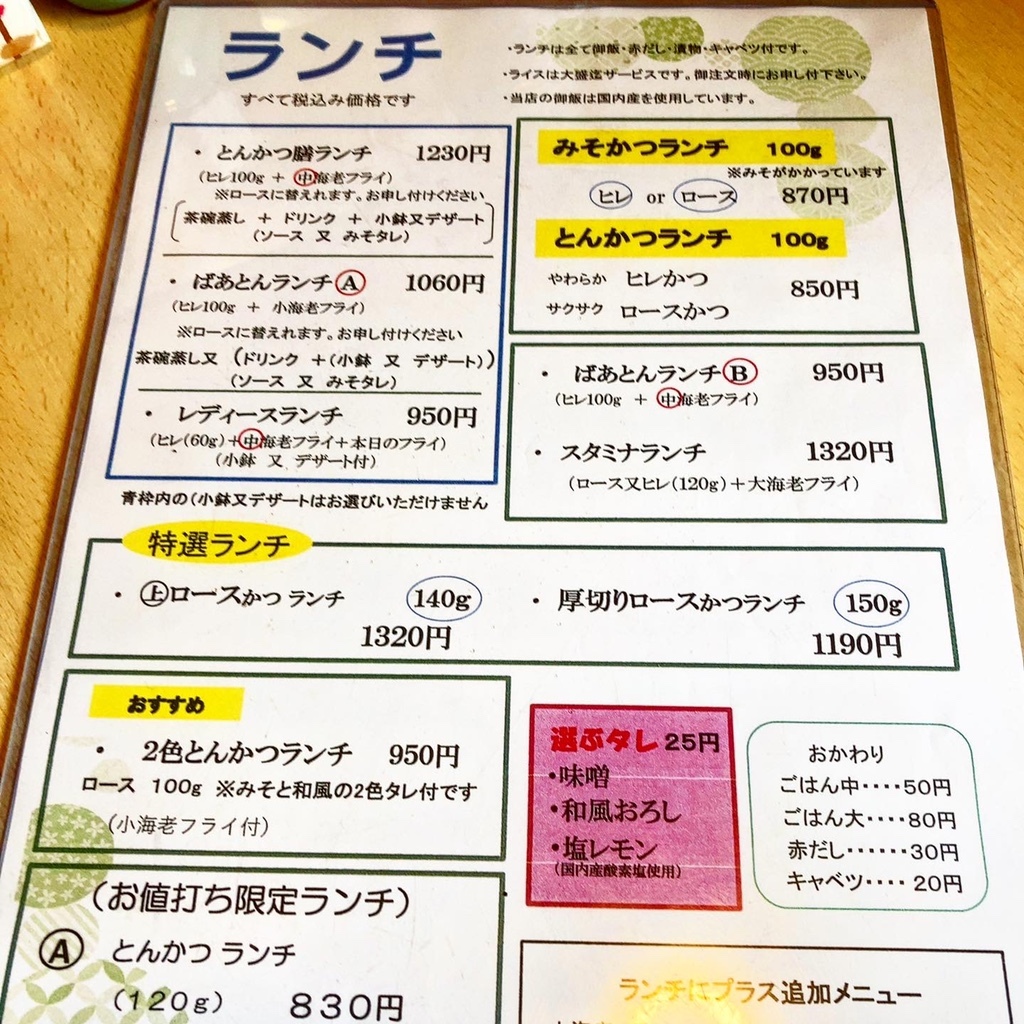 ランチ
すべて税込み価格です
・ランチは全て御飯・赤だし・漬物・キャベツ付です。
・ライスは大盛迄サービスです。御注文時にお申し付下さい。
・当店の御飯は国内産を使用しています。
・とんかつ膳ランチ 1230円
(ヒレ100g + 中海老フライ)
※ロースに替えれます。お申し付けください
茶碗蒸し + ドリンク + 小鉢又デザート
(ソース 又 みそタレ)
・ばあとんランチ A 1060円
(ヒレ100g + 小海老フライ)
※ロースに替えれます。お申し付けください
茶碗蒸し又 (ドリンク +(小鉢 又 デザート))
(ソース 又 みそタレ)
・レディースランチ 950円
(ヒレ(60g)+中海老フライ+本日のフライ)
(小鉢 又 デザート付)
青枠内の(小鉢又デザートはお選びいただけません
みそかつランチ 100g
※みそがかかっています
ヒレ or ロース 870円
とんかつランチ 100g
やわらか ヒレかつ
850円
サクサク ロースかつ
・ばあとんランチ B 950円
(ヒレ100g + 中海老フライ)
・スタミナランチ 1320円
(ロース又ヒレ(120g)+大海老フライ)
特選ランチ
・上ロースかつ ランチ 140g
1320円
・厚切りロースかつランチ 150g
1190円
おすすめ
・2色とんかつランチ 950円
ロース 100g ※みそと和風の2色タレ付です
(小海老フライ付)
選ぶタレ 25円
・味噌
・和風おろし
・塩レモン
(国内産酸素塩使用)
おかわり
ごはん中・・・・50円
ごはん大・・・・80円
赤だし・・・・・・30円
キャベツ・・・・20円
(お値打ち限定ランチ)
A とんかつ ランチ
(120g) 830円
ランチにプラス追加メニュー